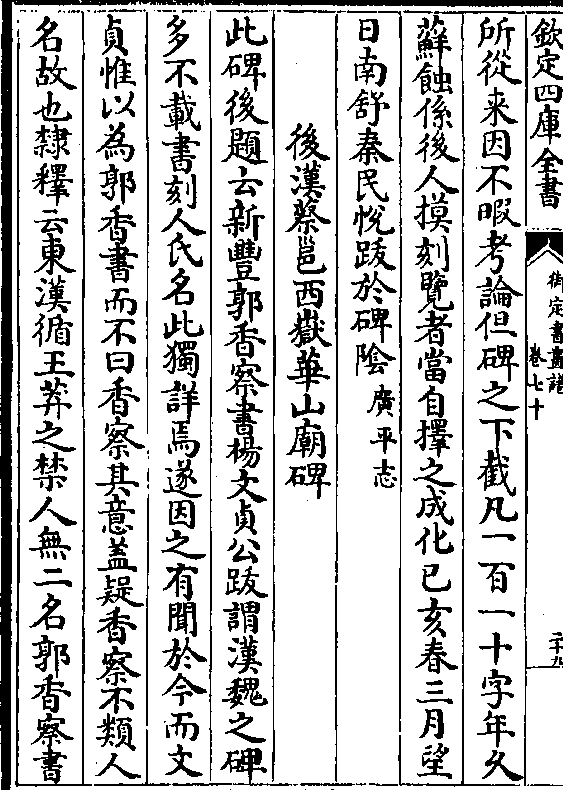 欽定四庫全書
御定書畫譜
卷七十
二十九
所從来因不暇考論但碑之下截凡一百一十字年久
蘇蝕係後人摸刻覽者當自擇之成化己亥春三月望
日南舒秦民悅跋於碑陰廣平志
後漢蔡邕西嶽華山廟碑
此碑後題云新豐郭香察書楊文貞公跋謂漢魏之碑
多不載書刻人氏名此獨詳焉遂因之有聞於今而文
貞惟以為郭香書而不曰香察其意蓋疑香察不類人
名故也隸釋云東漢循王莽之禁人無二名郭香察書